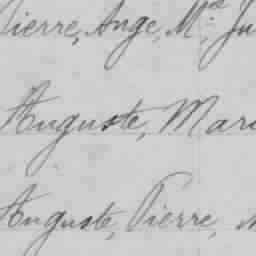 Pierre, Ange, M.d Ju
Auguste, Mari
Auguste, Pierre, M